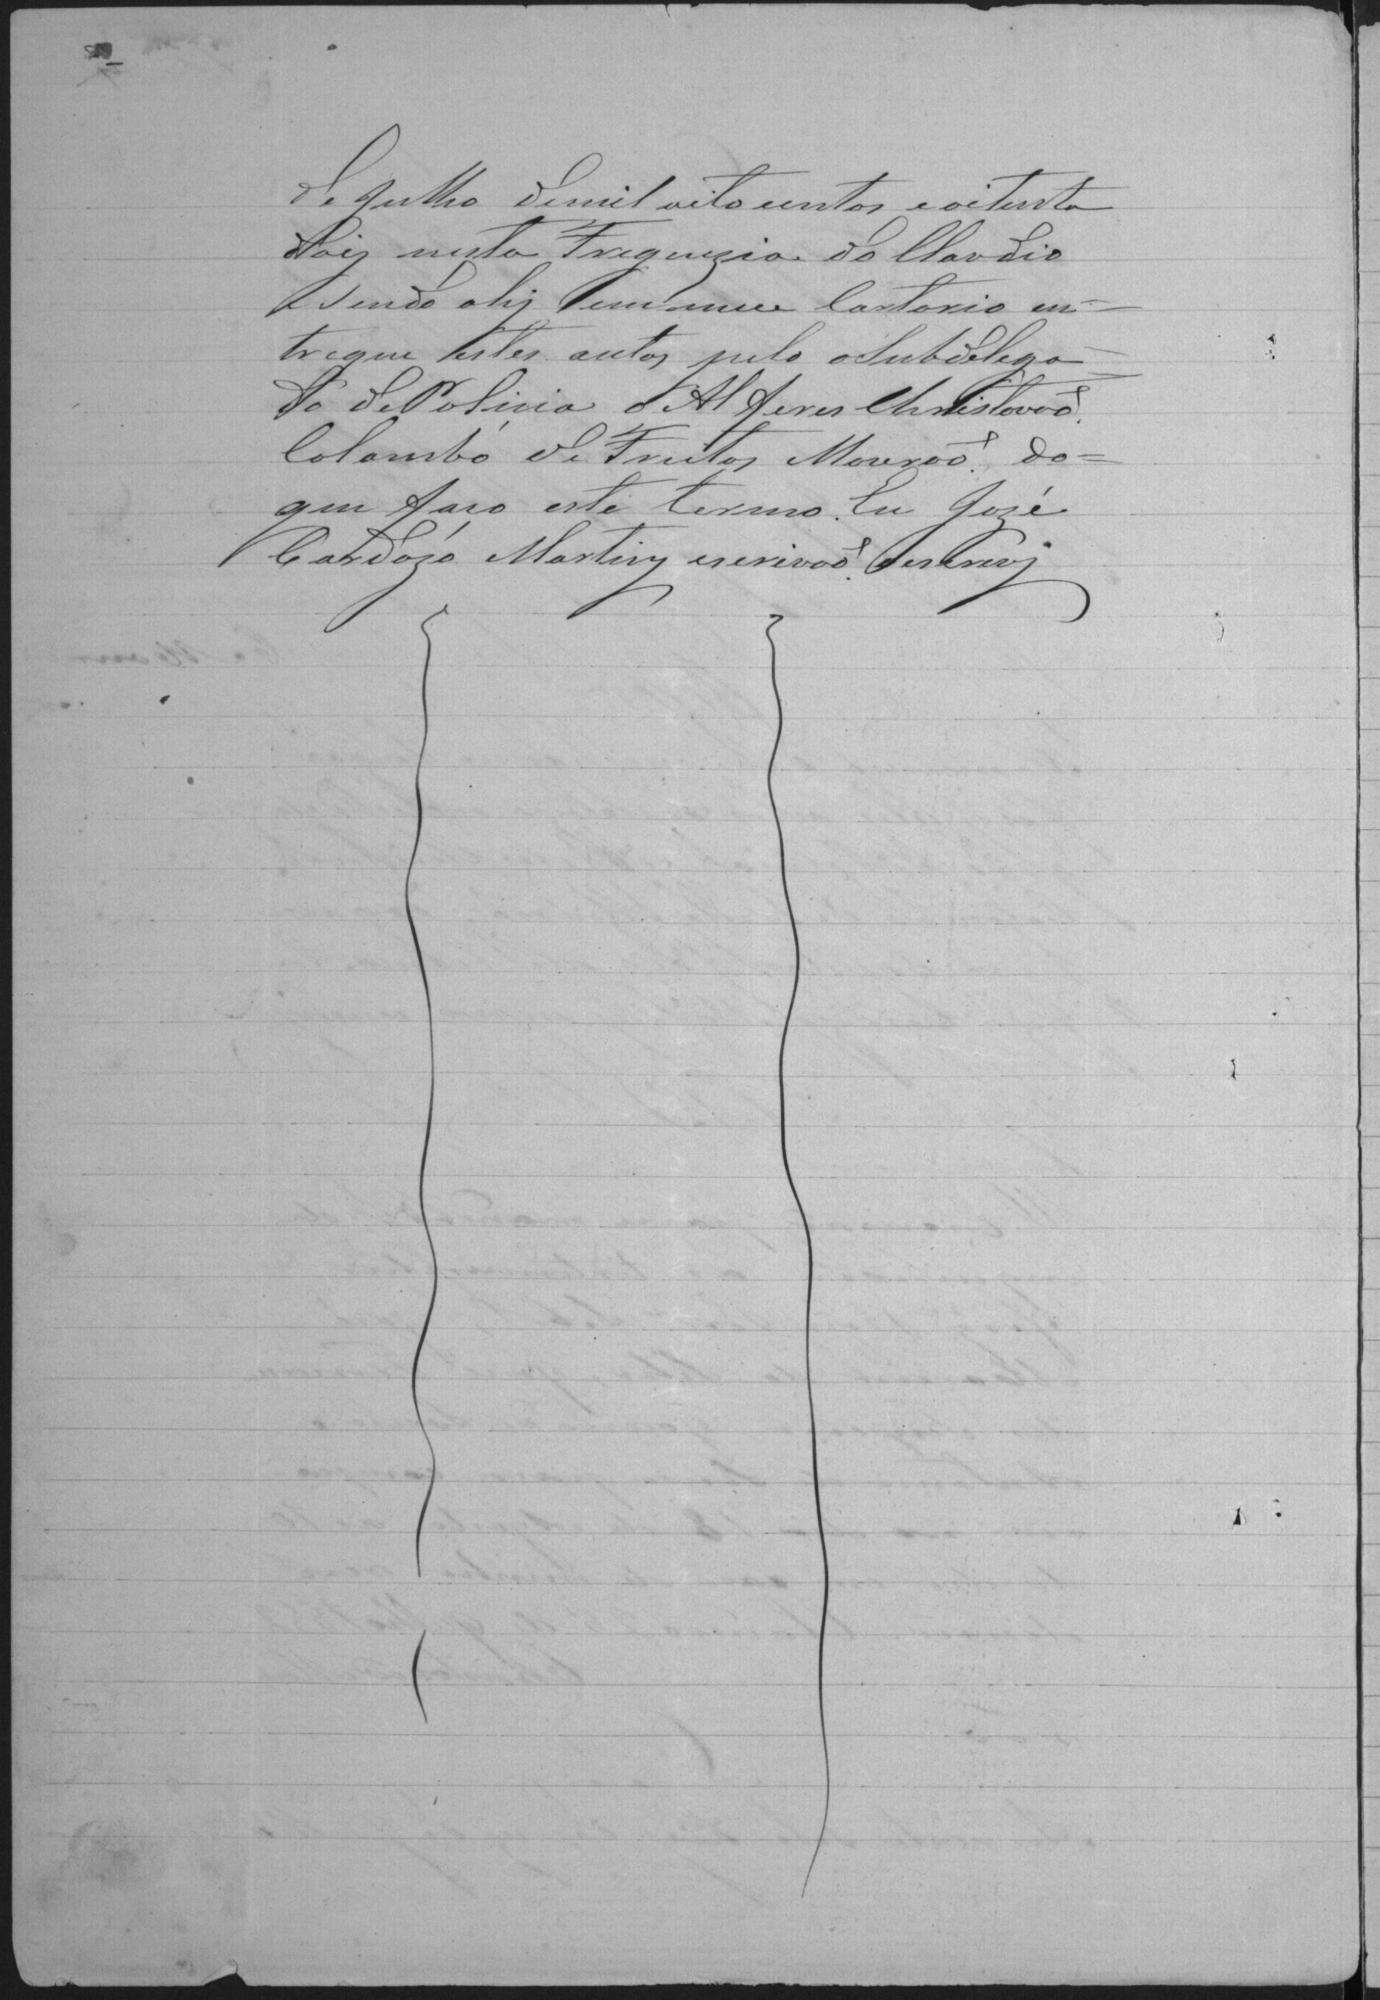 de Julho de mil oito centos e oitenta
dois nesta Freguezia do Claudio
sendo ahj em meu Cartorio en=
tregue estes autos pelo o Subdelega=
do de Policia o Alferes Christovaõ
Colombo de Freitas Mouraõ. do=
que faço este termo. Eu José
Cardozo Martins escrivaõ escrevj